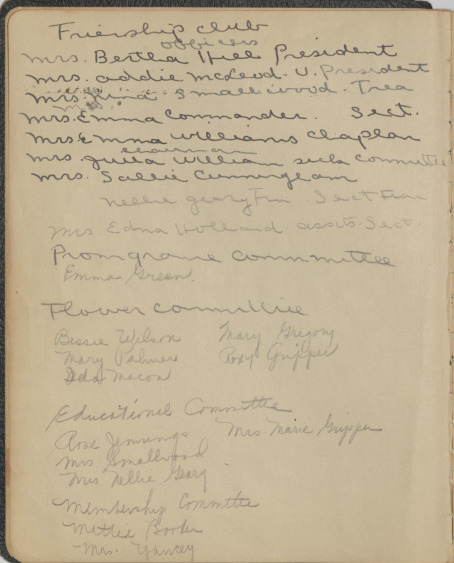 Friership club
officers
Mrs. Bertha Hill President
Mrs. addie McLeod. V. President
Mrs. Nina Smallwood. Trea
Mrs. Emma Commander. Sect.
Mrs Emma Williams Chaplan
chairman
Mrs. Julia William sick Committee
Mrs. Sallie Cunningham
Nellie geary Fin. Sect
Mrs Edna Holland assts. Sect.
Promgrame Committee
Emma Green
Flower Committie
Bessie Wilson Mary Gregory
Mary Palmer Roxy Gripper
Ida Macon
Educational Committee
Rose Jennings Mrs. Marie Gripper
Mrs Smallwood
Mrs Nellie Geary
Membership Committee
Mattie Booker
Mrs. Yancey